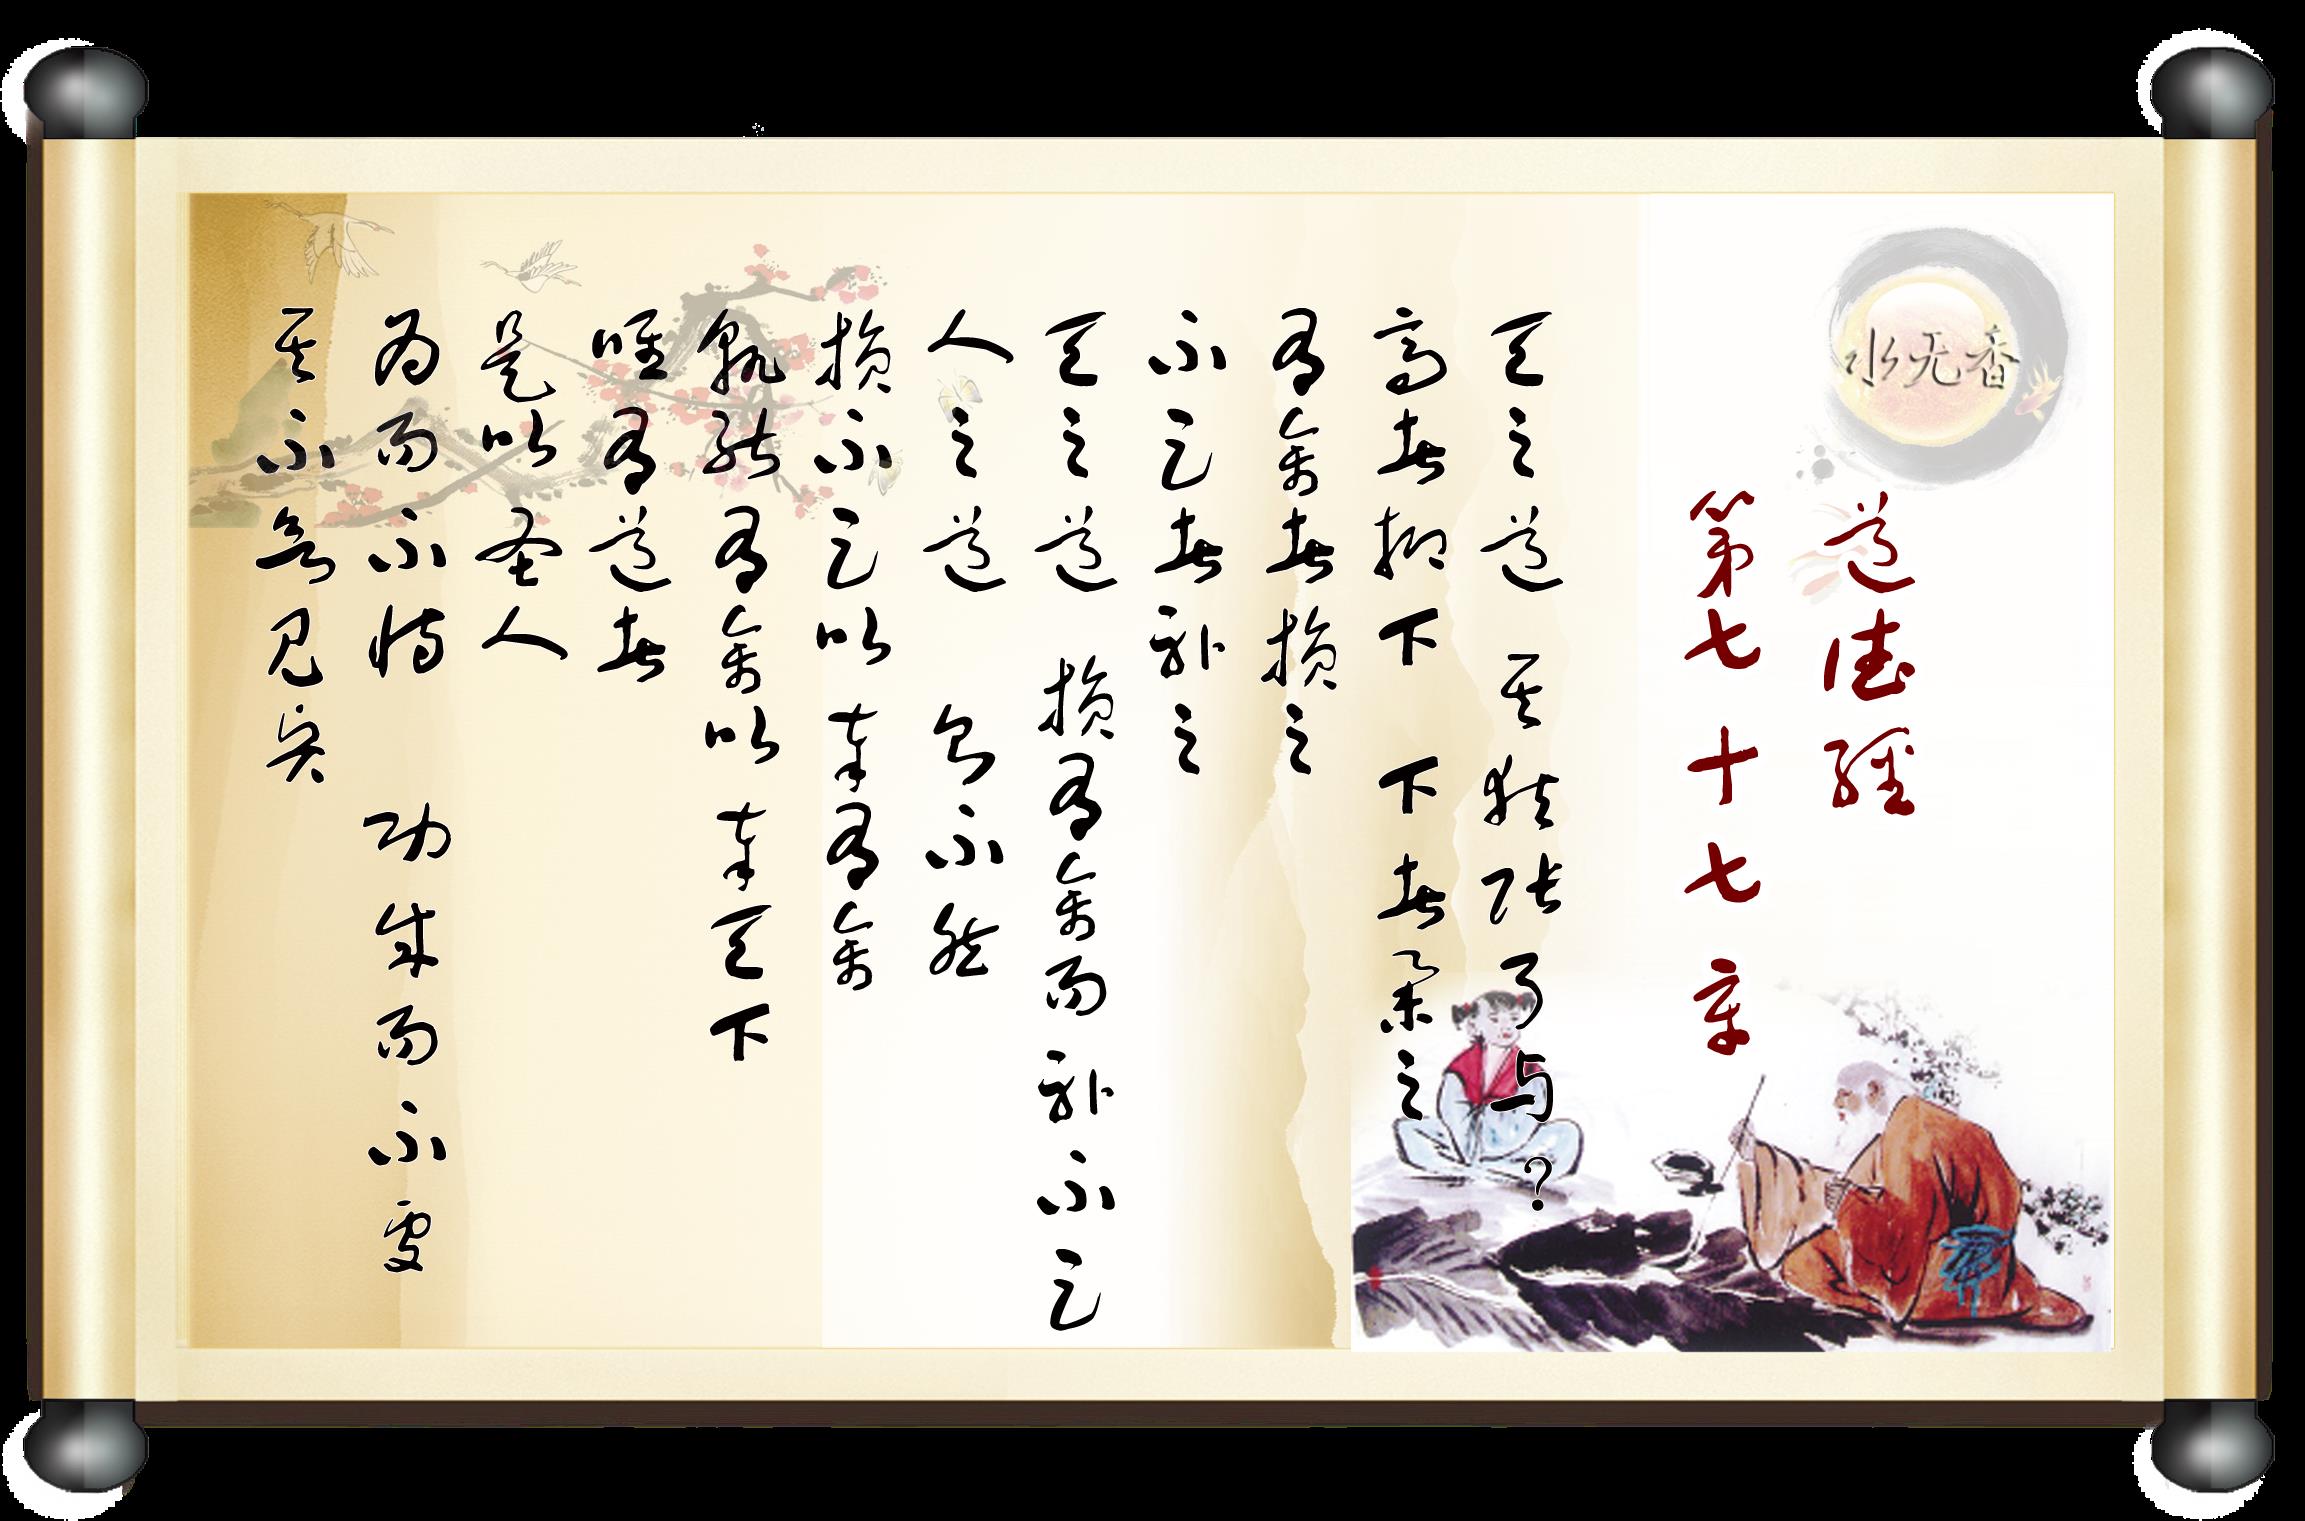 水无香
道德经
第七十七章
天之道 其犹张弓与?
高者抑下 下者举之
有余者损之
不足者补之
天之道 损有余而补不足
人之道 则不然
损不足以奉有余
孰能有余以奉天下
唯有道者
是以圣人
为而不恃 功成而不处
其不欲见贤